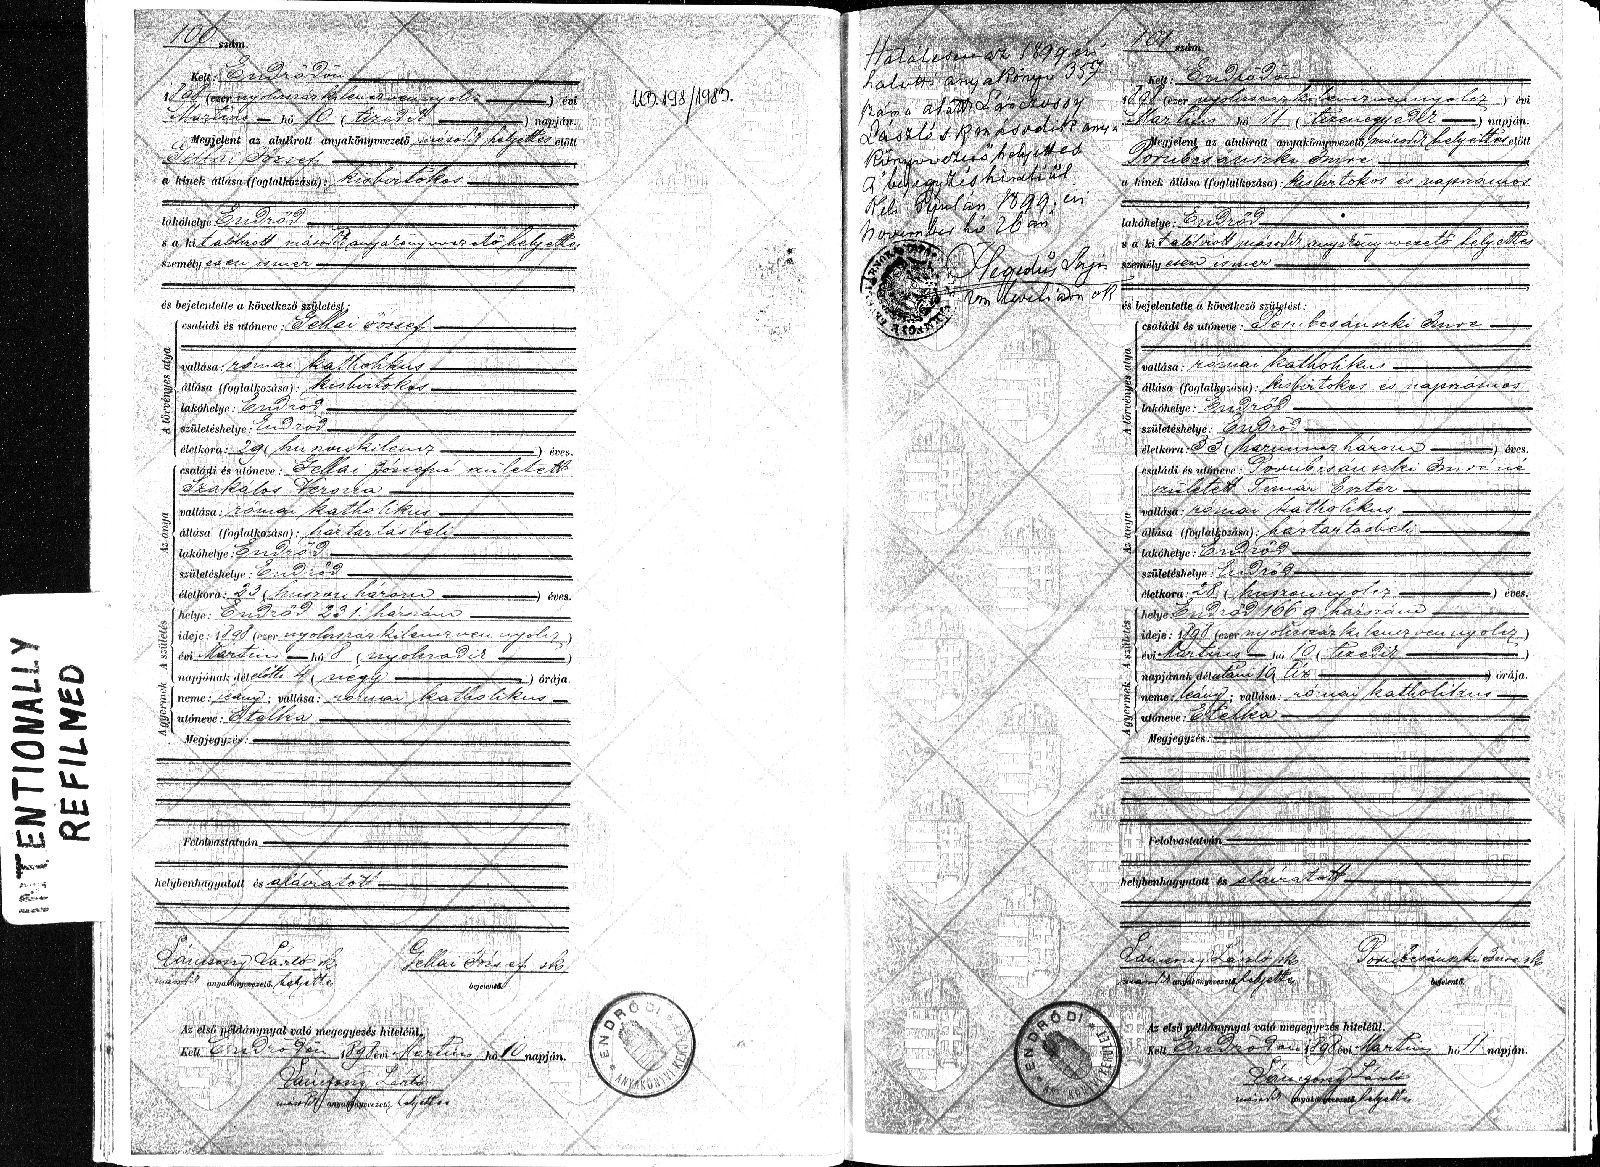 INTENTIONALLY
REFILMED
100 szám.
Kelt: Endrődön
1898 (ezer nyolcszázkilencvennyolcz) évi
Martius hó 10 (tizedik) napján.
Megjelent az alulirott anyakönyvezető másodk helyettes előtt
Gellai József
a kinek állása (foglalkozása): kisbirtokos
lakóhelye: Endrőd
s a kit alólirott másodk anyakönyvvezető helyettes
személyesen ismer
és bejelentette a következő születést:
A törvényes atya
családi és utóneve: Gellai József
vallása: római katholikus
állása (foglalkozása): kisbirtokos
lakóhelye: Endrőd
születéshelye: Endrőd
életkora: 29 (huszonkilencz) éves.
Az anya
családi és utóneve: Gellai Józsefné született
Szakálos Verona
vallása: római katholikus
állása (foglalkozása): háztartásbeli
lakóhelye: Endrőd
születéshelye: Endrőd
életkora: 23 (huszonhárom) éves.
A születés
helye: Endrőd 231. házszám
ideje: 1898 (ezer nyolcszázkilenczvennyolcz)
évi Martius hó 8 (nyolczadik)
napjának délelőtti 4 (négy) órája.
A gyermek
neme: leány; vallása: római katholikus
utóneve: Etelka
Megjegyzés:
Felolvastatván
helybenhagyatott és aláíratott
László sk Gellai József sk
másodk anyakönyvezető. helyettes bejelentő.
Az első példánynyal való megegyezés hiteléül.
Kelt Endrődön 1898 évi Martius hó 10 napján.
László
másodk anyakönyvezető. helyettes
ENDRŐDI
ANYAKÖNYVI KERÜLET
UD.198/1983.
Halálozás az 1899 évi
halotti anyakönyv 357
száma alatt
László s k második anya-
könyvvezető helyettes
a bejegyzés hiteléül
Kelt Gyulán 1899. évi
november hó 26 án
Hegedüs
vm levéltárnok
101 szám.
Kelt: Endrődön
1898 (ezer nyolcszázkilenczvennyolcz) évi
Martius hó 11 (tizenegyedik) napján.
Megjelent az alulirott anyakönyvezető másodk helyettes előtt
Porubcsánszki Imre
a kinek állása (foglalkozása): kisbirtokos és napszámos
lakóhelye: Endrőd
s a kit alólirott másodk anyakönyvvezető helyettes
személyesen ismer
és bejelentette a következő születést:
A törvényes atya
családi és utóneve: Porubcsánszki Imre
vallása: római katholikus
állása (foglalkozása): kisbirtokos és napszámos
lakóhelye: Endrőd
születéshelye: Endrőd
életkora: 33 (harminczhárom) éves.
Az anya
családi és utóneve: Porubcsánszki Imréné
született Timár Eszter
vallása: római katholikus
állása (foglalkozása): háztartásbeli
lakóhelye: Endrőd
születéshelye: Endrőd
életkora: 28 (huszonnyolcz) éves.
A születés
helye: Endrőd 166 9 házszám
ideje: 1898 (ezer nyolcszázkilenczvennyolcz)
évi Martius hó 10 (tizedik)
napjának délutáni 10 (tíz) órája.
A gyermek
neme: leány; vallása: római katholikus
utóneve: Etelka
Megjegyzés:
Felolvastatván
helybenhagyatott és aláíratott
László sk Porubcsánszki Imre sk
másodk anyakönyvezető. helyettes bejelentő.
Az első példánynyal való megegyezés hiteléül.
Kelt Endrődön 1898 évi Martius hó 11 napján.
László
másodk anyakönyvezető. helyettes
ENDRŐDI
ANYAKÖNYVI KERÜLET